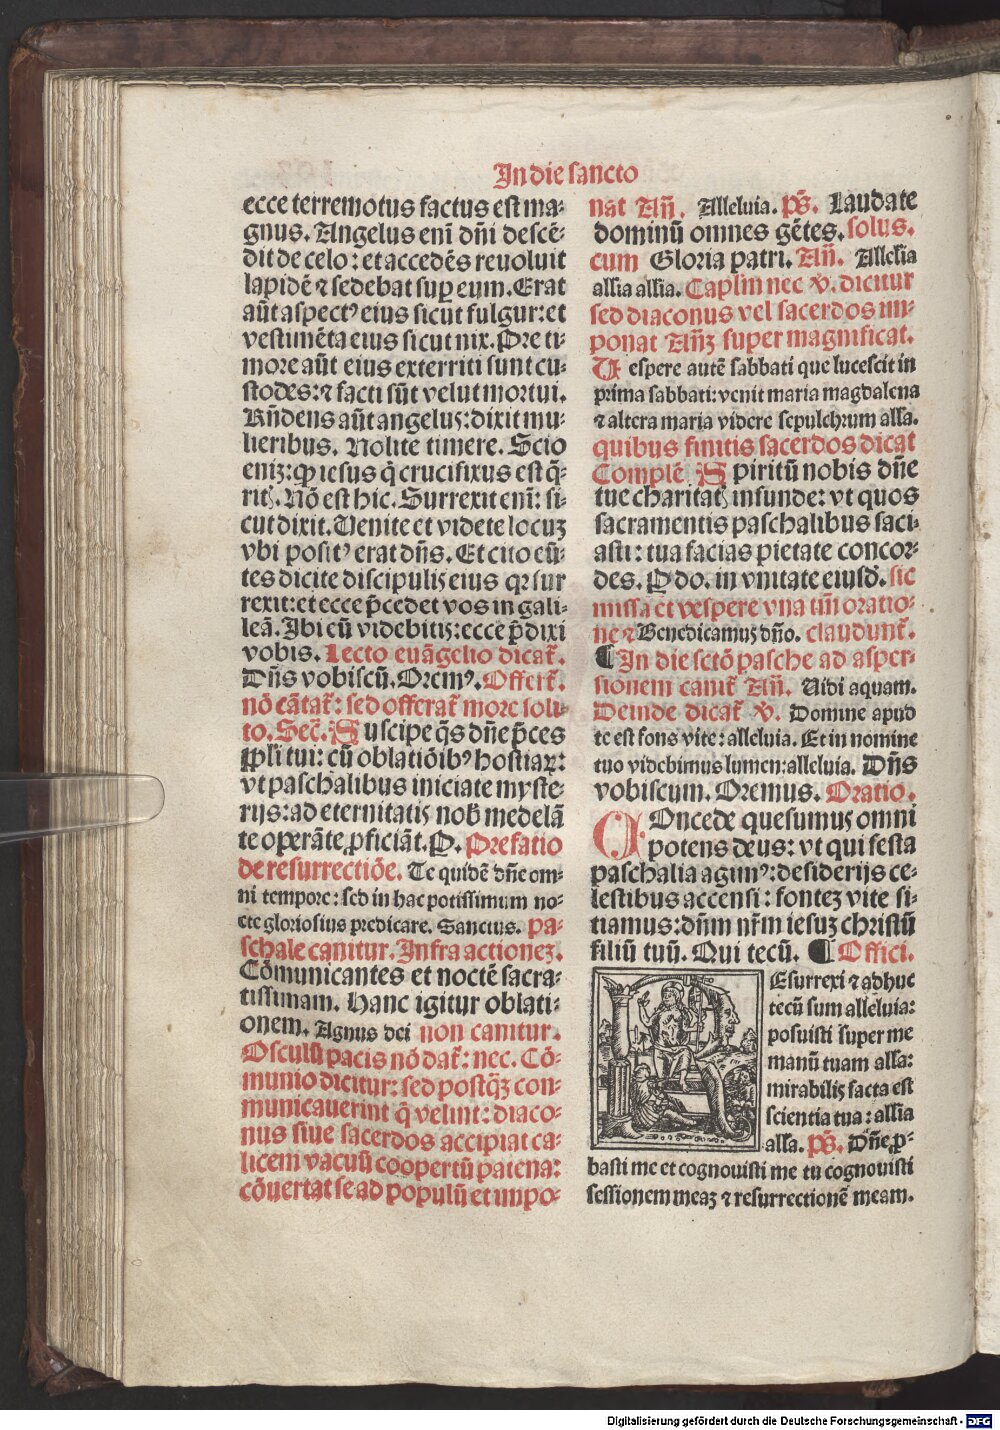 In die sancto
ecce terremotus factus est ma⸗
gnus. Angelus enī dn̄i descē⸗
dit de celo: et accedēs reuoluit
lapidē ⁊ sedebat suꝑ eum. Erat
aūt aspectꝰ eius sicut fulgur: et
vestimēta eius sicut nix. Pre ti⸗
more aūt eius exterriti sunt cu⸗
stodes: ⁊ facti sūt velut mortui.
Rn̄dens aūt angelus: dixit mu⸗
lieribus. Nolite timere. Scio
eniꝫ: ꝙ iesus q̄ crucifixus est q̄⸗
ritꝭ. Nō est hic. Surrexit enī: si⸗
cut dixit. Uenite et videte locuꝫ
vbi positꝰ erat dn̄s. Et cito eū⸗
tes dicite discipulꝭ eius qꝛ sur
rexit: et ecce p̄cedet vos in gali⸗
leā. Ibi eū videbitꝭ: ecce p̄dixi
vobis. Lecto euāgelio dicat᷑.
Dn̄s vobiscū. Oremꝰ. Offert᷑.
nō cātat᷑: sed offerat᷑ more soli⸗
to. Sec᷑. Suscipe q̄s dn̄e p̄ces
ppl̄i tui: cū oblatiōibꝰ hostiaꝝ:
vt paschalibus iniciate myste⸗
rijs: ad eternitatꝭ nob̄ medelā
te operāte ꝓficiāt. P. Prefatio
de resurrectiōe. Te quidē dn̄e om⸗
ni tempore: sed in hac potissimum no⸗
cte gloriosius predicare. Sanctus. pa⸗
schale canitur. Infra actioneꝫ.
Cōmunicantes et noctē sacra⸗
tissimam. Hanc igitur oblati⸗
onem. Agnus dei non canitur.
Osculū pacis nō dat᷑: nec. Cō⸗
munio dicitur: sed postq̄ꝫ con⸗
municauerint q̄ velint: diaco⸗
nus siue sacerdos accipiat ca⸗
licem vacuū coopertū patena:
cōuertat se ad populū et impo⸗
nat An̄. Alleluia. ps̄. Laudate
dominū omnes gētes. solus.
cum Gloria patri. An̄. Allelia
allia allia. Caplm nec v̄. dicitur
sed diaconus vel sacerdos im⸗
ponat An̄ꝫ super magnificat.
Uespere autē sabbati que lucescit in
prima sabbati: venit maria magdalena
⁊ altera maria videre sepulchrum alla.
quibus finitis sacerdos dicat
Complē Spiritū nobis dn̄e
tue charitatꝭ infunde: vt quos
sacramentis paschalibus saci⸗
asti: tua facias pietate concor⸗
des. P do. in vnitate eiusd̄. sic
missa et vespere vna cū oratio⸗
ne ⁊ Benedicamus dn̄o. claudunt᷑.
¶ In die sctō pasche ad asper⸗
sionem canit᷑ An̄. Uidi aquam.
Deinde dicat᷑ v̄. Domine apud
te est fons vite: alleluia. Et in nomine
tuo videbimus lumen: alleluia. Dn̄s
vobiscum. Oremus. Oratio.
COncede quesumus omni
potens deus: vt qui festa
paschalia agimꝰ: desiderijs ce⸗
lestibus accensi: fonteꝫ vite si⸗
tiamus: dn̄m nr̄m iesuꝫ christū
filiū tuū. Qui tecū. ¶ Offici.
Esurrexi ⁊ adhuc
tecū sum alleluia:
posuisti super me
manū tuam alla:
mirabilꝭ facta est
scientia tua: allia
alla. ps̄. Dn̄e ꝓ⸗
basti me et cognouisti me tu cognouisti
sessionem meaꝫ ⁊ resurrectionē meam.
Digitalisierung gefördert durch die Deutsche Forschungsgemeinschaft - DFG